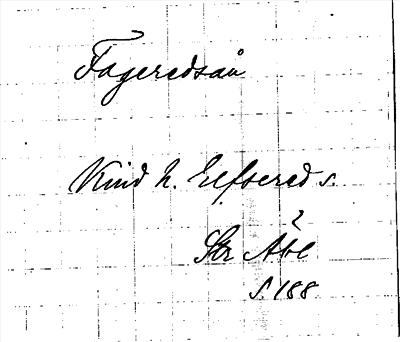 Fageredsån
Kind h. Elfsered s.
2
Åbl
S. 188